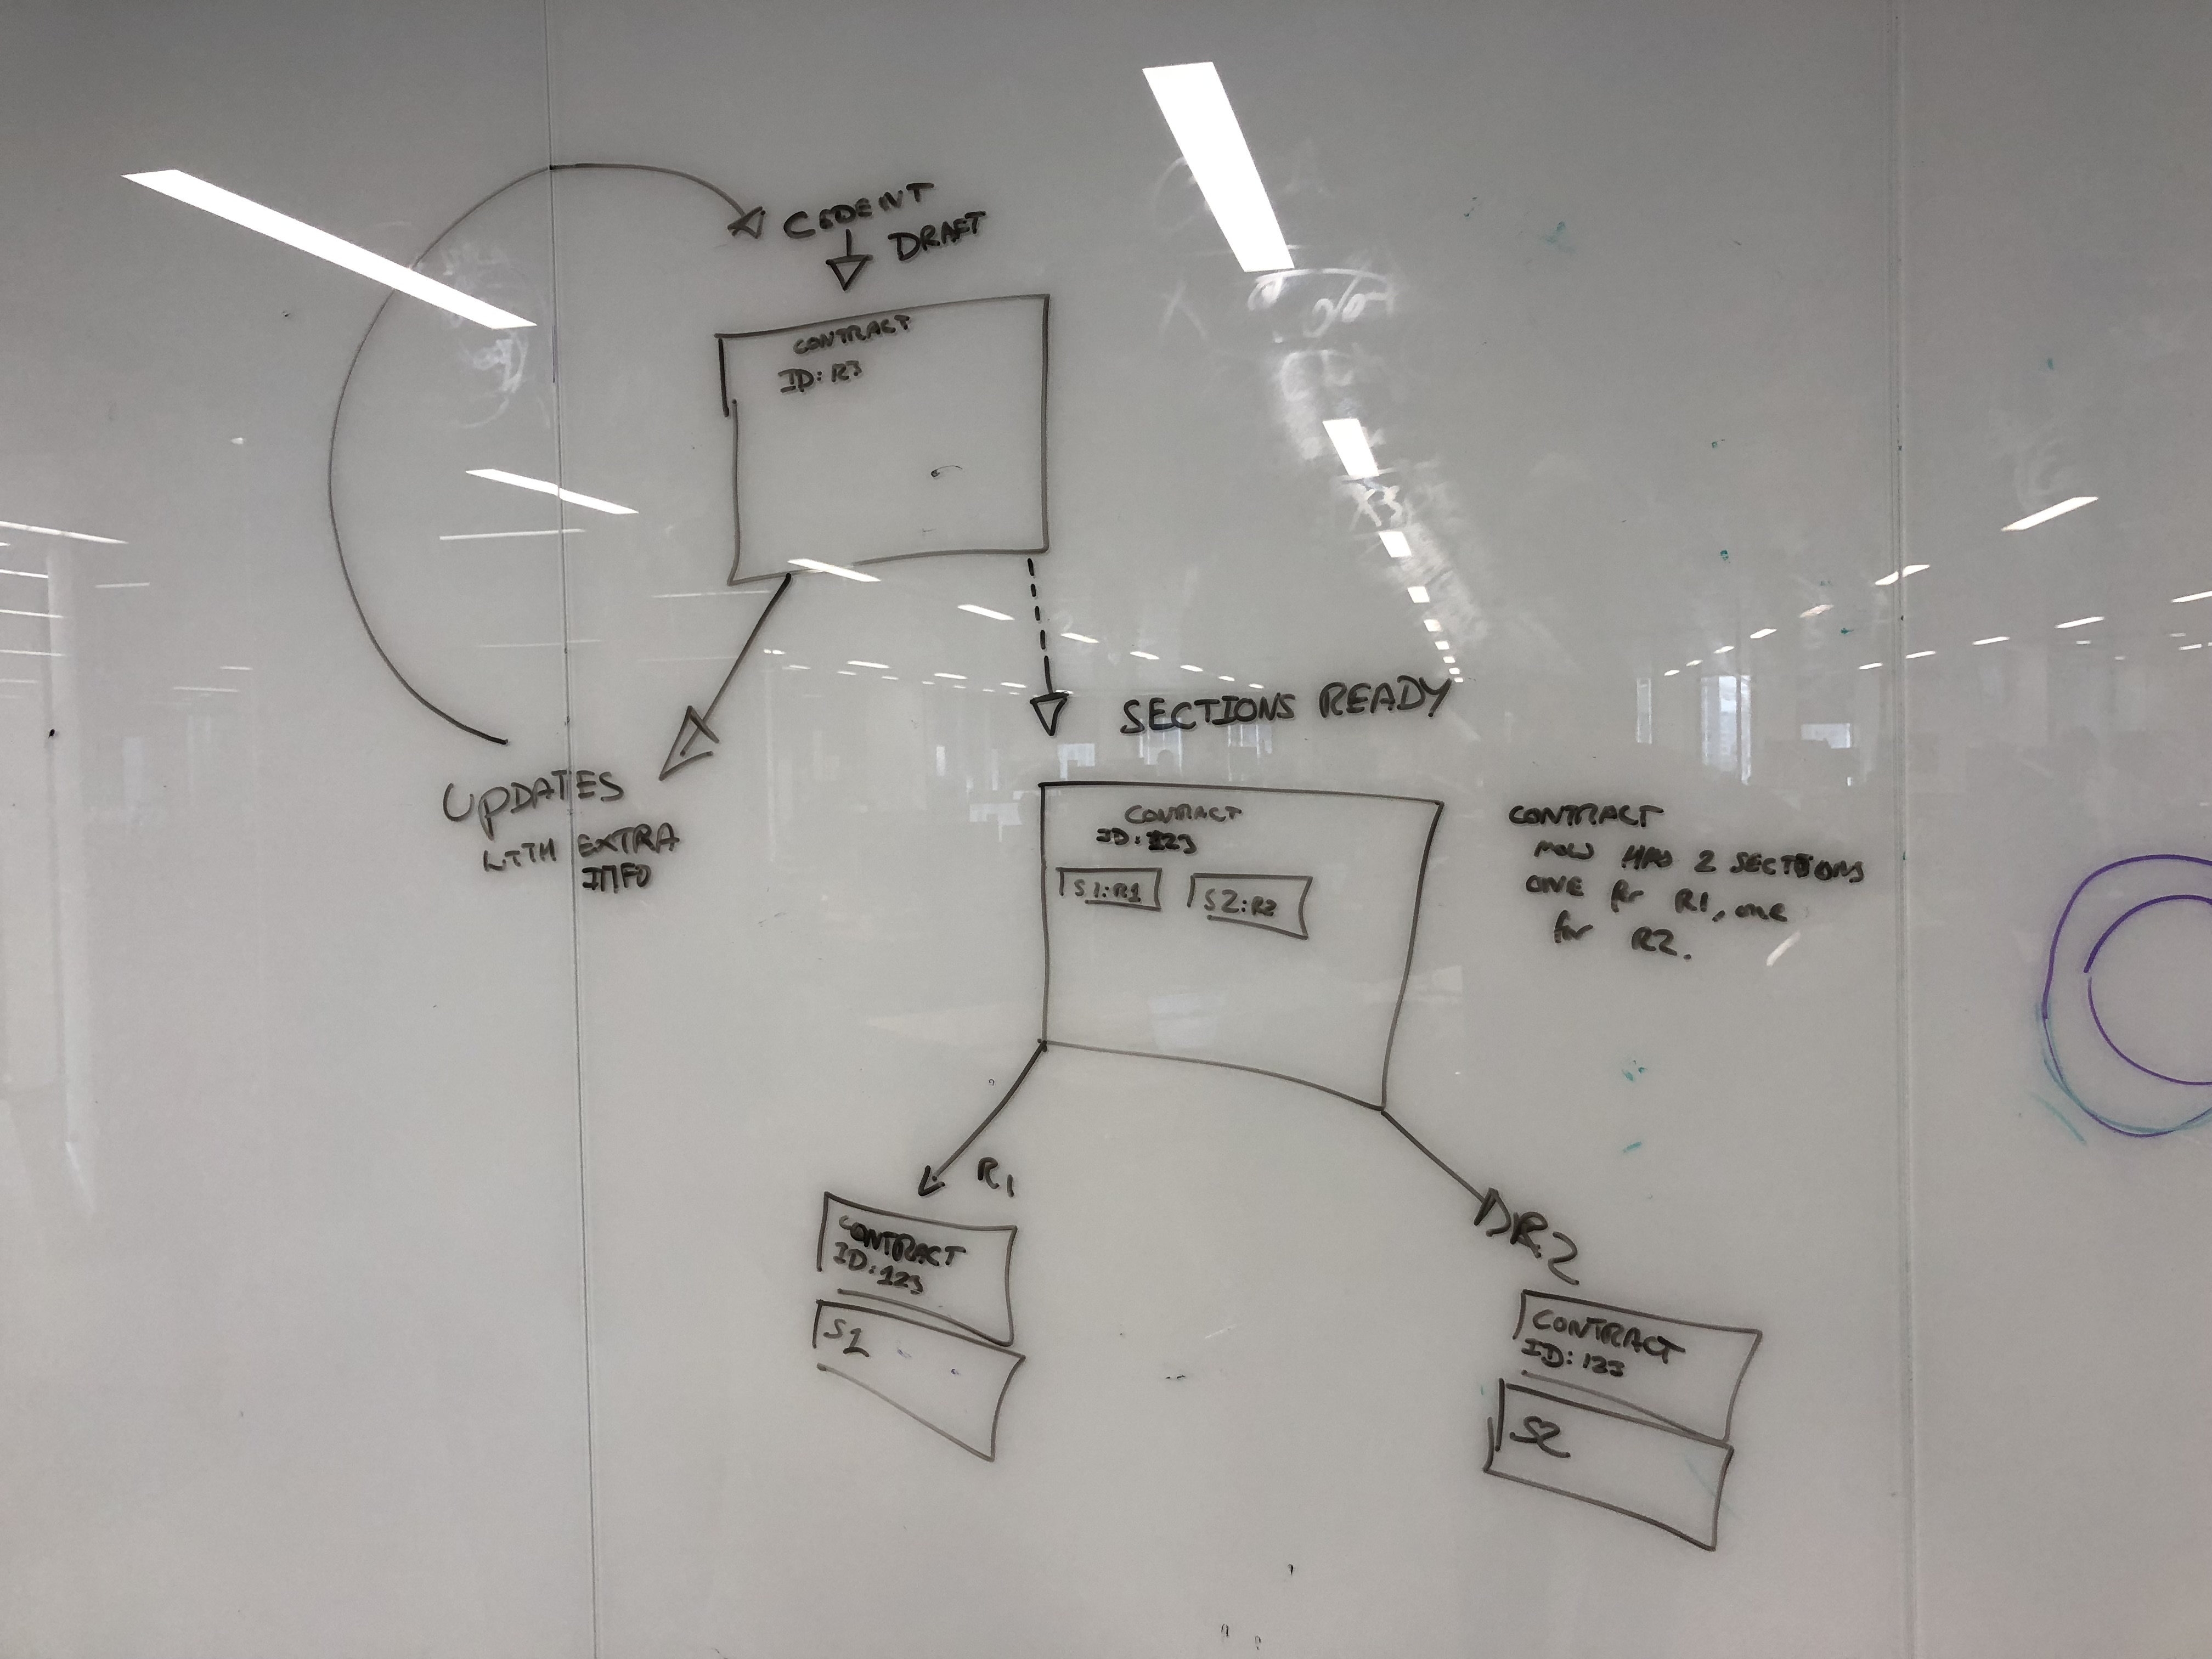 CEDENT
DRAFT
CONTRACT
ID: R3
SECTIONS READY
UPDATES
WITH EXTRA
INFO
CONTRACT
ID: 123
S1:R1
S2:R2
CONTRACT
NOW HAS 2 SECTIONS
ONE for R1, one
for R2.
R1
R2
CONTRACT
ID: 123
S1
CONTRACT
ID: 123
S2